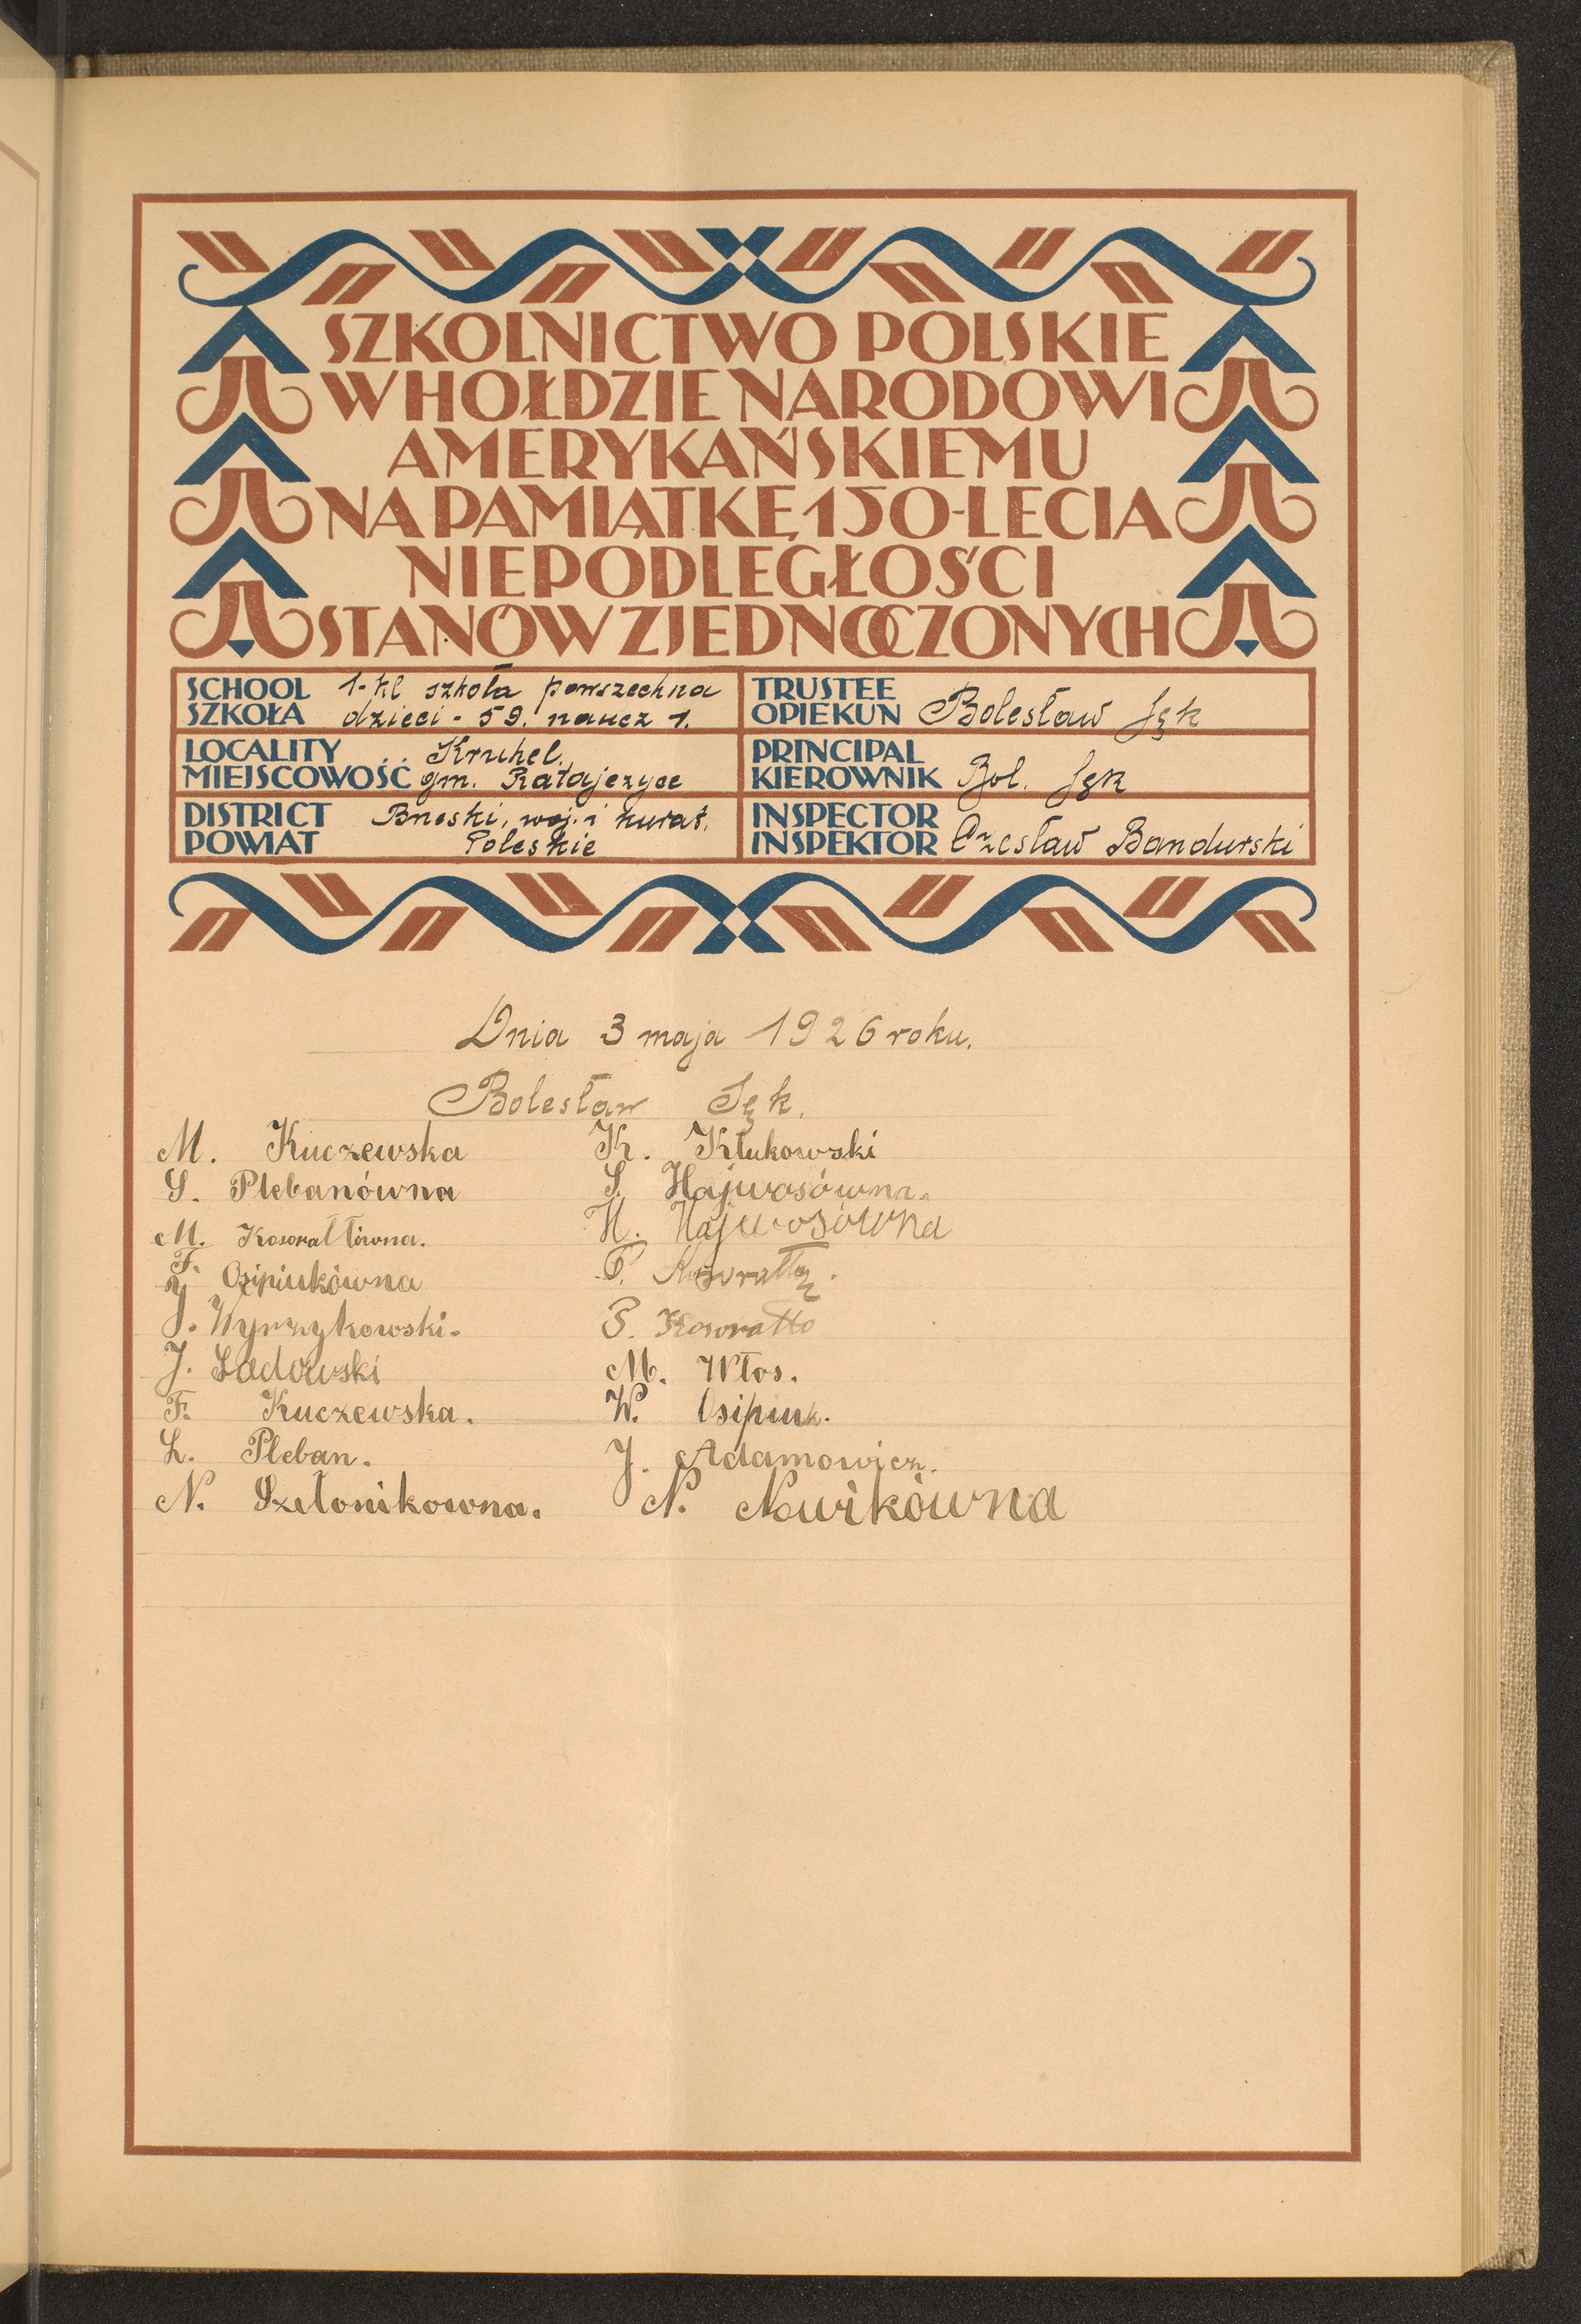 SZKOLNICTWO POLSKIE
W HOŁDZIE NARODOWI
AMERYKAŃSKIEMU
NA PAMIĄTKĘ 150-LECIA
NIEPODLEGŁOŚCI
STANÓW ZJEDNOCZONYCH
SCHOOL
SZKOŁA
1-kl szkoła powszechna
dzieci - 59. naucz 1.
TRUSTEE
OPIEKUN
Bolesław Sęk
LOCALITY
MIEJSCOWOŚĆ
Kruhel.
gm. Ratajczyce
PRINCIPAL
KIEROWNIK
Bol. Sęk
DISTRICT
POWIAT
Brzeski, woj. i kurat.
Poleskie
INSPECTOR
INSPEKTOR
Czesław Bandurski
Dnia 3 maja 1926 roku.
Bolesław Sęk.
M. Kuczewska
K. Kłukowski
S. Plebanówna
S. Hajwosówna.
M. Kosorałłówna.
H. Hajwosówna
F. Osipiukówna
P.
J. Wyrzykowski.
P. Kosorałło
J. Sadowski
M. Włos.
F. Kuczewska.
W. Osipiuk.
L. Pleban.
J. Adamowicz.
N. Szełonikowna.
N. Nowikówna